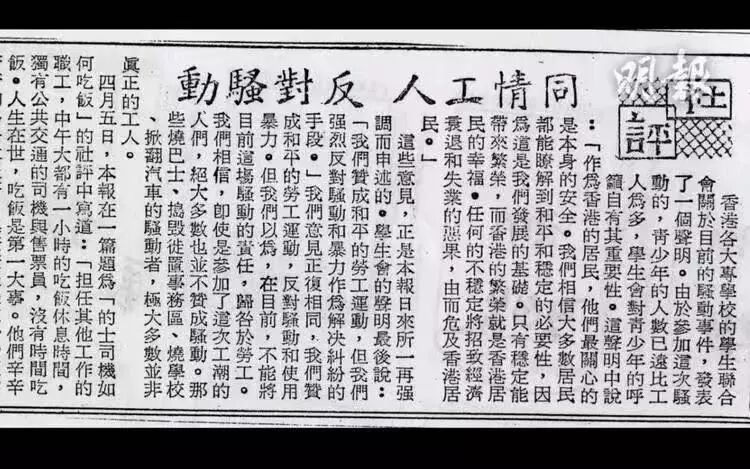 明報
社評
同情工人 反對騷動
香港各大專學校的學生聯合
會關於目前的騷動事件，發表
了一個聲明。由於參加這次騷
動的，青少年的人數已遠比工
人爲多，學生會對青少年的呼
籲自有其重要性。這聲明中說
：「作爲香港的居民，他們最關心的
是本身的安全。我們相信大多數居民
都能瞭解到和平和穩定的必要性，因
爲這是我們發展的基礎。只有穩定能
帶來繁榮，而香港的繁榮就是香港居
民的幸福。任何的不穩定將招致經濟
衰退和失業的惡果，由而危及香港居
民。」
這些意見，正是本報日來所一再强
調而申述的。學生會的聲明最後說：
「我們贊成和平的勞工運動，但我們
强烈反對騷動和暴力作爲解決糾紛的
手段。」我們意見正復相同，我們贊
成和平的勞工運動，反對騷動和使用
暴力。但我們以爲，在目前，不能將
目前這場騷動的責任，歸咎於勞工。
我們相信，卽使是參加了這次工潮的
人們，絕大多數也並不贊成騷動。那
些燒巴士、搗毀徙置事務區、燒學校
、掀翻汽車的騷動者，極大多數並非
眞正的工人。
四月五日，本報在一篇題爲「的士司機如
何吃飯」的社評中寫道：「担任其他工作的
職工，中午大都有一小時的吃飯休息時間，
獨有公共交通的司機與售票員，沒有時間吃
飯。人生在世，吃飯是第一大事。他們辛辛